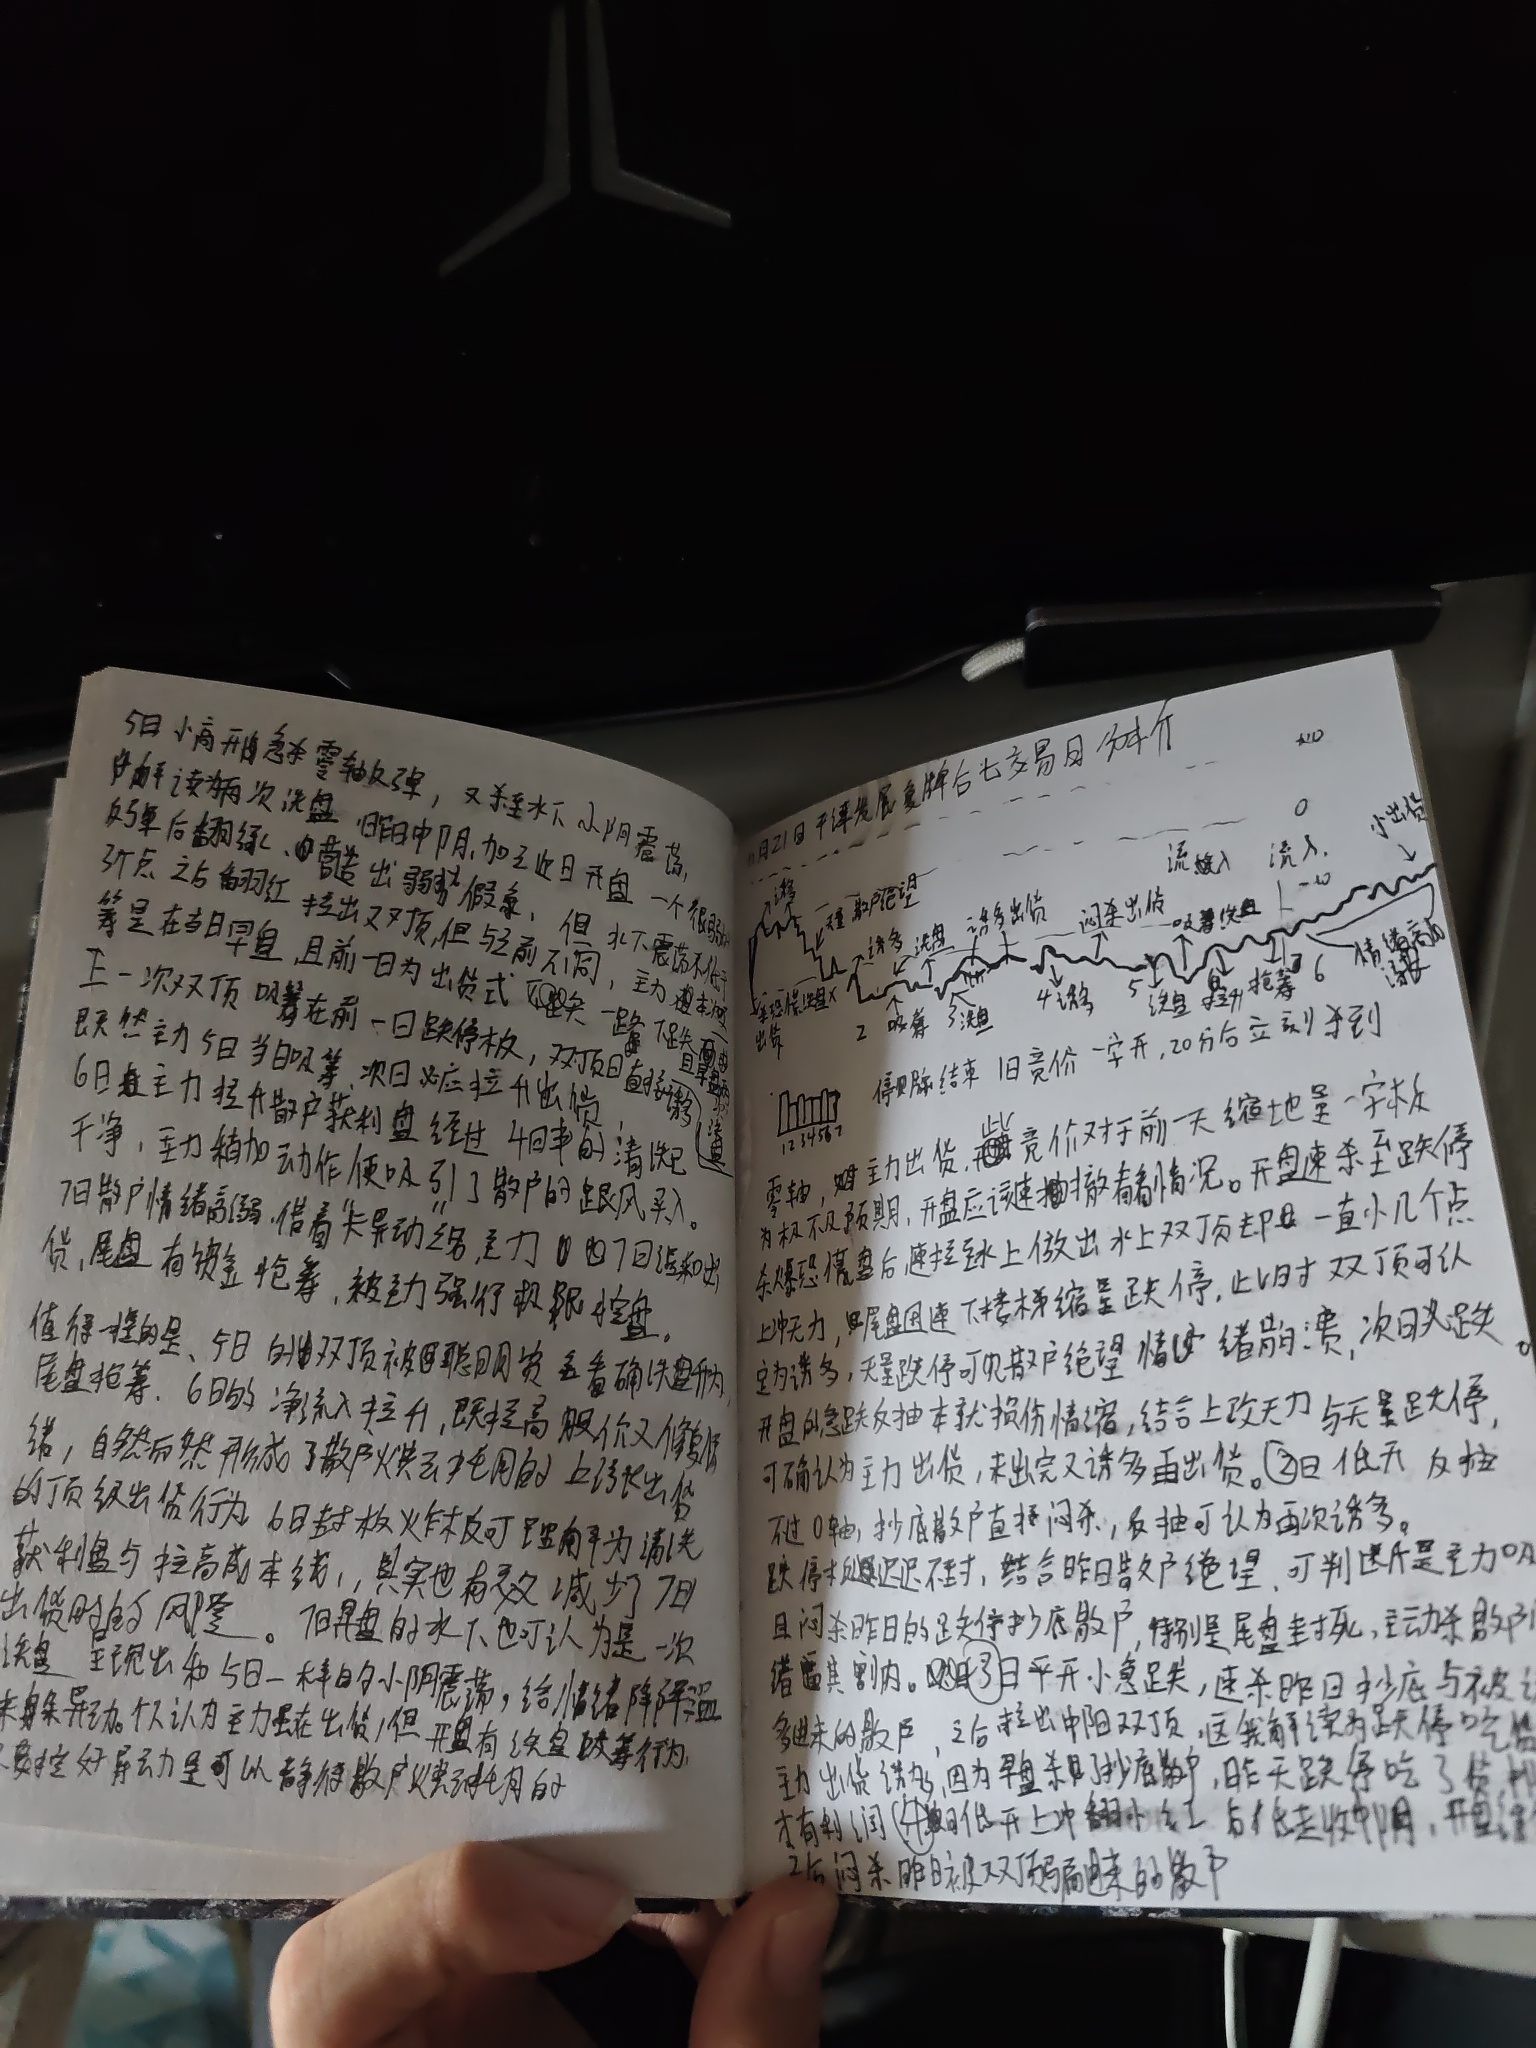 5日小高开急杀零轴反弹，又杀至水下小阴震荡，
解读为两次洗盘，昨日中阴，加之此日开盘一个很弱
反弹后翻绿、营造出弱势假象，但水下震荡不低于
3个点之后翻红拉出双顶，但与之前不同，主力
筹是在当日早盘，且前一日为出货式 一路下跌
上一次双顶吸筹在前一日跌停板，双顶日直接诱多
既然主力5日当日吸筹，次日必应拉升出货，
6日主力拉升散户获利盘经过4日的清洗已
干净，主力稍加动作便吸引了散户的跟风买入。
7日散户情绪高涨，借着"异动"之名，主力7日缓和出
货，尾盘有资金抢筹，被主力强行极限控盘。
值得一提的是、5日的双顶被聪明资金看确洗盘行为，
尾盘抢筹，6日的净流入拉升，既拉高股价又修复情
绪，自然而然形成了散户烘云托月的上涨出货
的顶级出货行为 6日封板炸板可理解为清洗
获利盘与拉高成本线，其实也有效减少了7日
出货时的风险。7日早盘的水下也可认为是一次
洗盘 呈现出和5日一样的小阴震荡，给情绪降降温
异动。个人认为主力虽在出货，但开盘有洗盘吸筹行为，
控好异动力是可以静待散户烘云托月的
21日平潭发展复牌后七交易日分析
+10
0
-10
小出货
流入
流入
诱多
散户绝望
诱多
洗盘
诱多出货
闷杀出货
吸筹洗盘
恐慌洗盘
出货
2
吸筹
3洗盘
4诱多
5
洗盘
拉升
抢筹
6
情绪高涨
1234567
停牌结束 1日竞价一字开，20分后立刻杀到
零轴，主力出货，此竞价对于前一天缩地量一字板
为极不及预期，开盘应该速撤看情况。开盘速杀至跌停
杀爆恐慌盘后，速拉至水上做出水上双顶却一直小几个点
上冲无力，尾盘迅速下楼梯缩量跌停，此时双顶可认
定为诱多，天量跌停可见散户绝望情绪崩溃，次日必跌。
开盘的急跌反抽本就损伤情绪，结合上攻无力与天量跌停，
可确认为主力出货，未出完又诱多再出货。②日低开反拉
不过0轴，抄底散户直接闷杀，反抽可认为再次诱多。
跌停板迟迟不封，结合昨日散户绝望，可判断是主力吸
且闷杀昨日的跌停抄底散户，特别是尾盘封死，主动杀散户
绪逼其割肉。③日平开小急跌，速杀昨日抄底与被
多进来的散户，之后拉出中阳双顶，这我解读为跌停吃货
主力出货诱多，因为早盘杀了抄底散户，昨天跌停吃了货
才有利润④日低开上冲翻小红后低走收中阴，开盘
之后闷杀昨日被双顶骗进来的散户